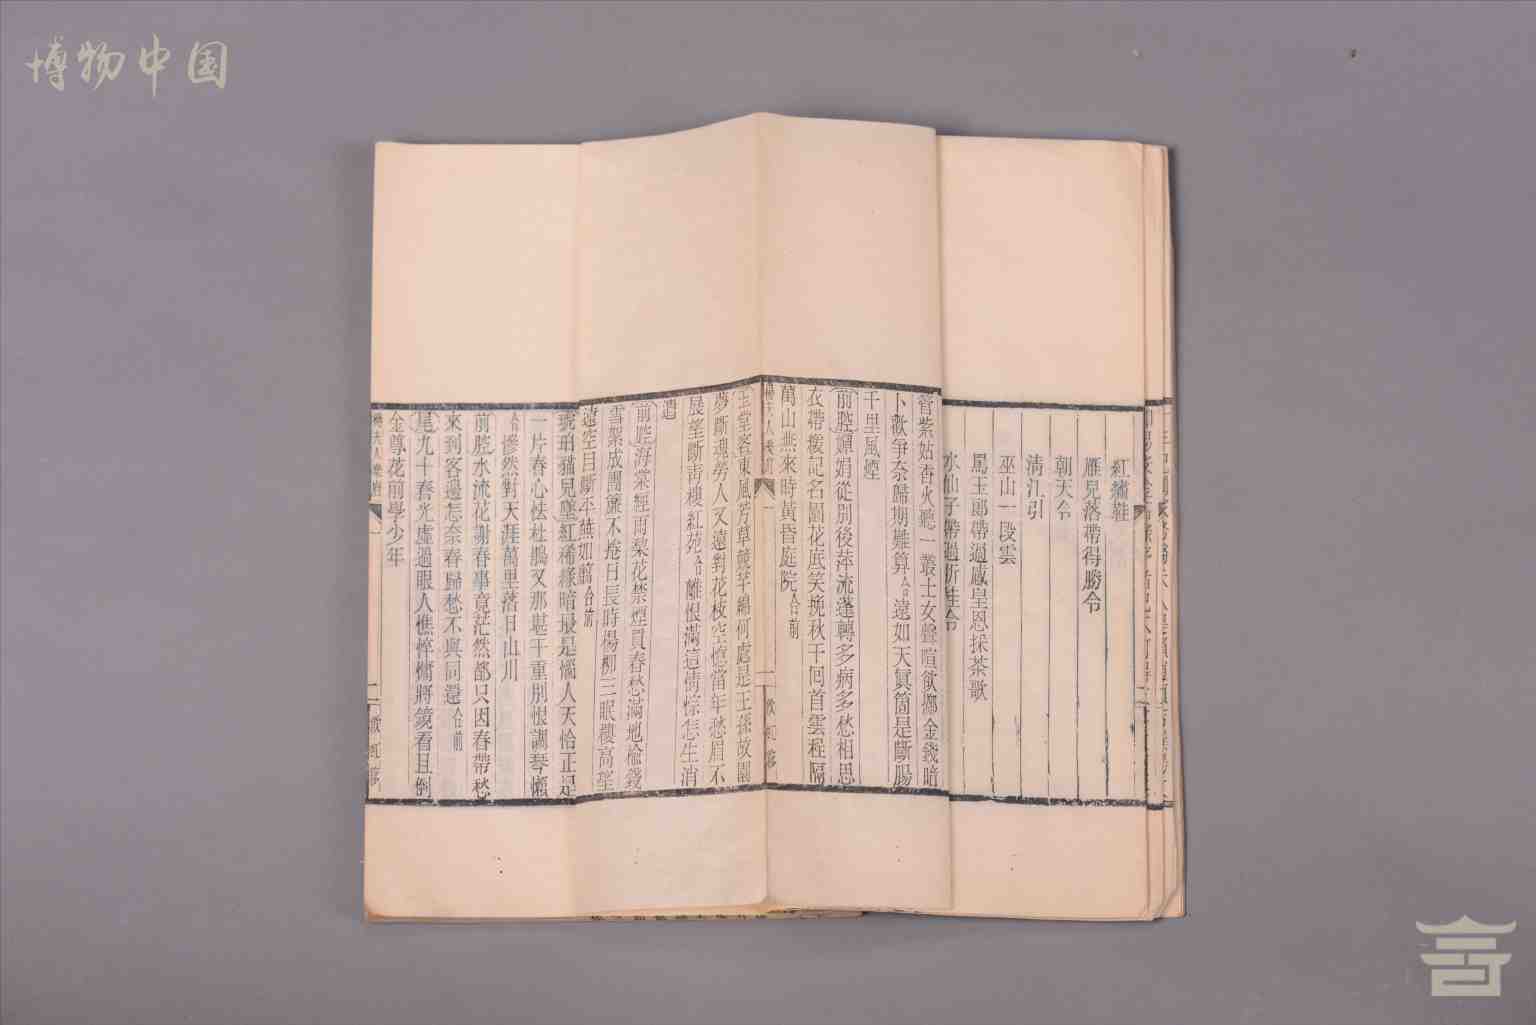 博物中国
紅繡鞋
雁兒落帶得勝令
朝天令
清江引
巫山一段雲
罵玉郎帶過感皇恩採茶歌
水仙子帶過折桂令
管紫姑香火聽一叢士女聲喧欲擲金錢暗
卜數爭奈歸期難算合遠如天真箇是斷腸
千里風煙
前腔嬋娟從別後萍流蓬轉多病多愁相思
衣帶緩記名園花底笑挽秋千回首雲程隔
萬山燕來時黃昏庭院合前
楊夫人樂府
一
二
散
玉堂客東風芳草競芊綿何處是王孫故園
夢斷魂勞人又遠對花枝空憶當年愁眉不
展望斷青樓紅苑合離恨滿這情悰怎生消
遣
前腔海棠經雨梨花禁煙買春愁滿地榆錢
雪絮成團簾不捲日長時楊柳三眠樓高望
遠空目斷平蕪如翦合前
琥珀猫兒墜紅稀綠暗最是惱人天恰正是
一片春心怯杜鵑又那堪千重別恨調琴懶
合慘然對天涯萬里落日山川
前腔水流花謝春事竟茫然都只因春帶愁
來到客邊怎奈春歸愁不與同還合前
尾九十春光虛過眼人憔悴慵將鏡看且倒
金尊花前學少年
楊夫人樂府
一
二
散